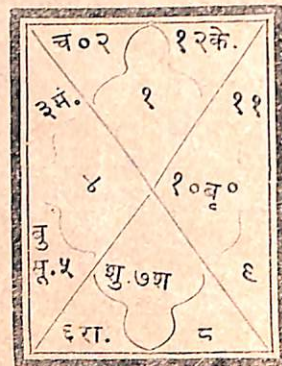 च०२ १२के.
३मं. १ ११
४ १०बृ०
बु
सू.५ शु.७श ९
६रा. ८